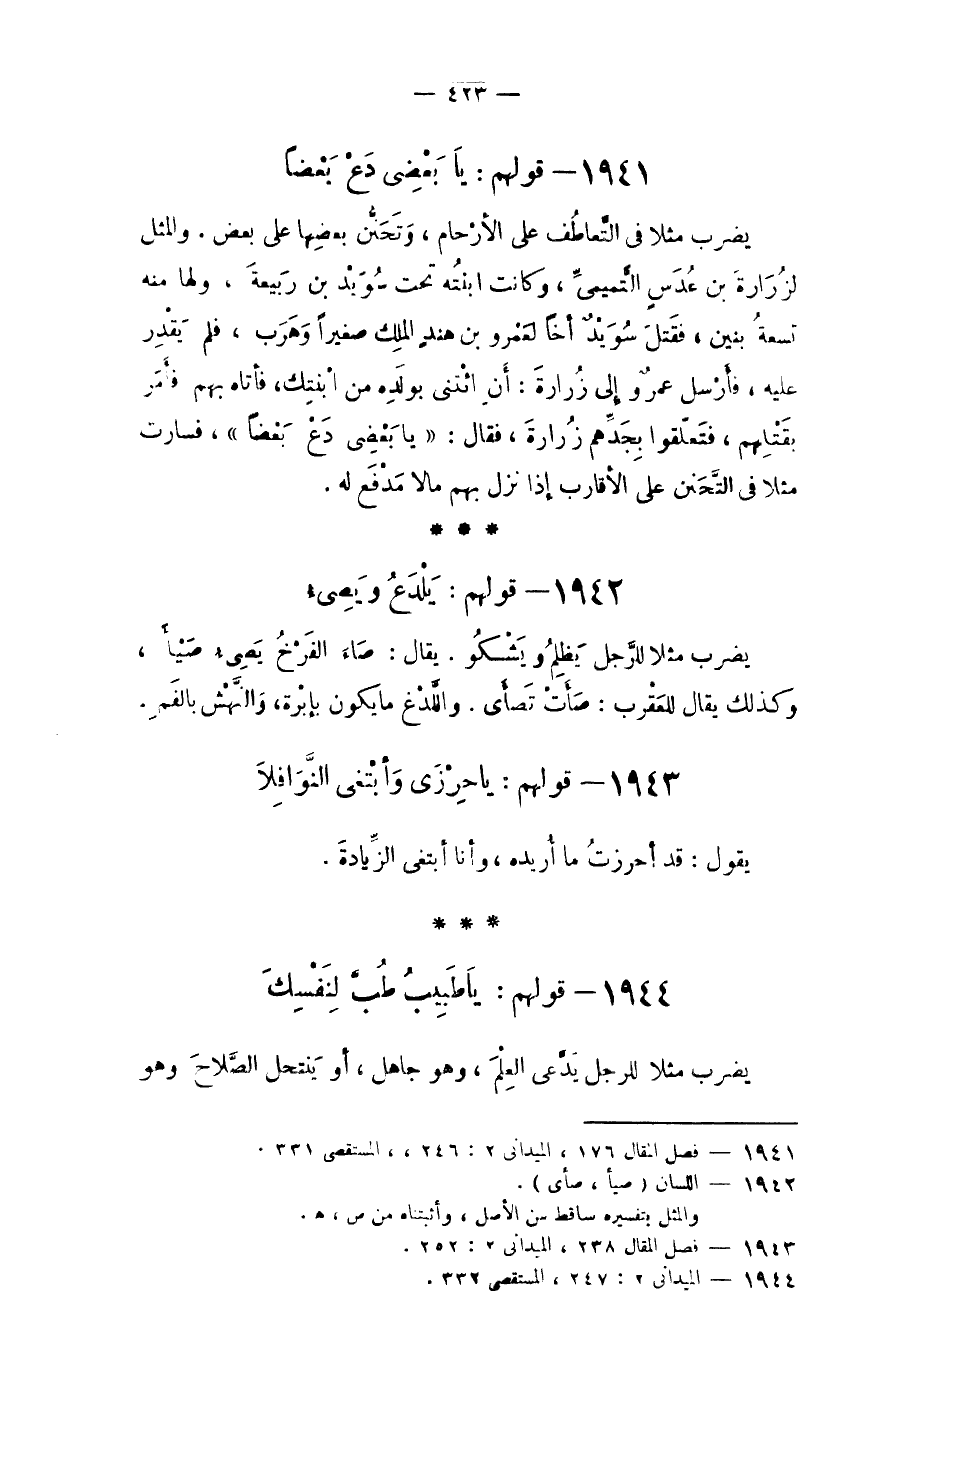 — ٤٢٣ —
١٩٤١ — قولهم : يَا بَعْضِى دَعْ بَعْضاً
يضرب مثلا فى التَّعاطُف على الأرْحام ، وَتَحَنُّن بعضِها على بعض . والمثل
لزُرَارةَ بن عُدَسٍ التَّميمىِّ ، وكانت ابنتُه تحت سُوَيْد بن رَبيعةَ ، ولها منه
تسعةُ بنين ، فقَتلَ سُوَيْدٌ أخاً لعَمْرو بن هندٍ الملِك صغيراً وَهَرَب ، فلم يَقْدِر
عليه ، فأَرْسل عمرٌو إلى زُرارةَ : أَنِ ائْتنى بولَدِه من ابْنتِك، فأتاه بهم فأَمَر
بقَتْلِهم ، فتَعلّقوا بِجَدِّهم زُرارةَ ، فقال : « يا بَعْضِى دَعْ بَعْضاً » ، فسارت
مثلا فى التَّحَنن على الأقارب إذا نزل بهم مالا مَدْفَع له .
* * *
١٩٤٢ — قولهم : يَلْدَغُ ويَصِىء
يضرب مثلا للرَّجل يَظلِمُ و يَشْكُو . يقال : صَاءَ الفَرْخُ يَصِىء صَيْأً ،
وكذلك يقال للعَقْرب : صَأَتْ تَصأَى . واللَّدْغ مايكون بإبْرة، وَالنَّهْش بالفَمِ .
١٩٤٣ — قولهم : ياحِرْزَى وَأَبْتغى النَّوَافِلاَ
يقول : قد أحرزتُ ما أُريده ، وأنا أبتغى الزِّيادةَ .
* * *
١٩٤٤ — قولهم : يَاطَبِيبُ طُبَّ لِنَفْسِكَ
يضرب مثلا للرجل يَدَّعى العِلْمَ ، وهو جاهل ، أو يَنتحل الصَّلاحَ وهو
١٩٤١ — فصل المقال ١٧٦ ، الميدانى ٢ : ٢٤٦ ، ، المستقصى ٣٣١ .
١٩٤٢ — اللسان ( صيأ ، صأى ) .
والمثل بتفسيره ساقط من الأصل ، وأثبتناه من ص ، ﻫ .
١٩٤٣ — فصل المقال ٢٣٨ ، الميدانى ٢ : ٢٥٢ .
١٩٤٤ — الميدانى ٢ : ٢٤٧ ، المستقصى ٣٣٢ .